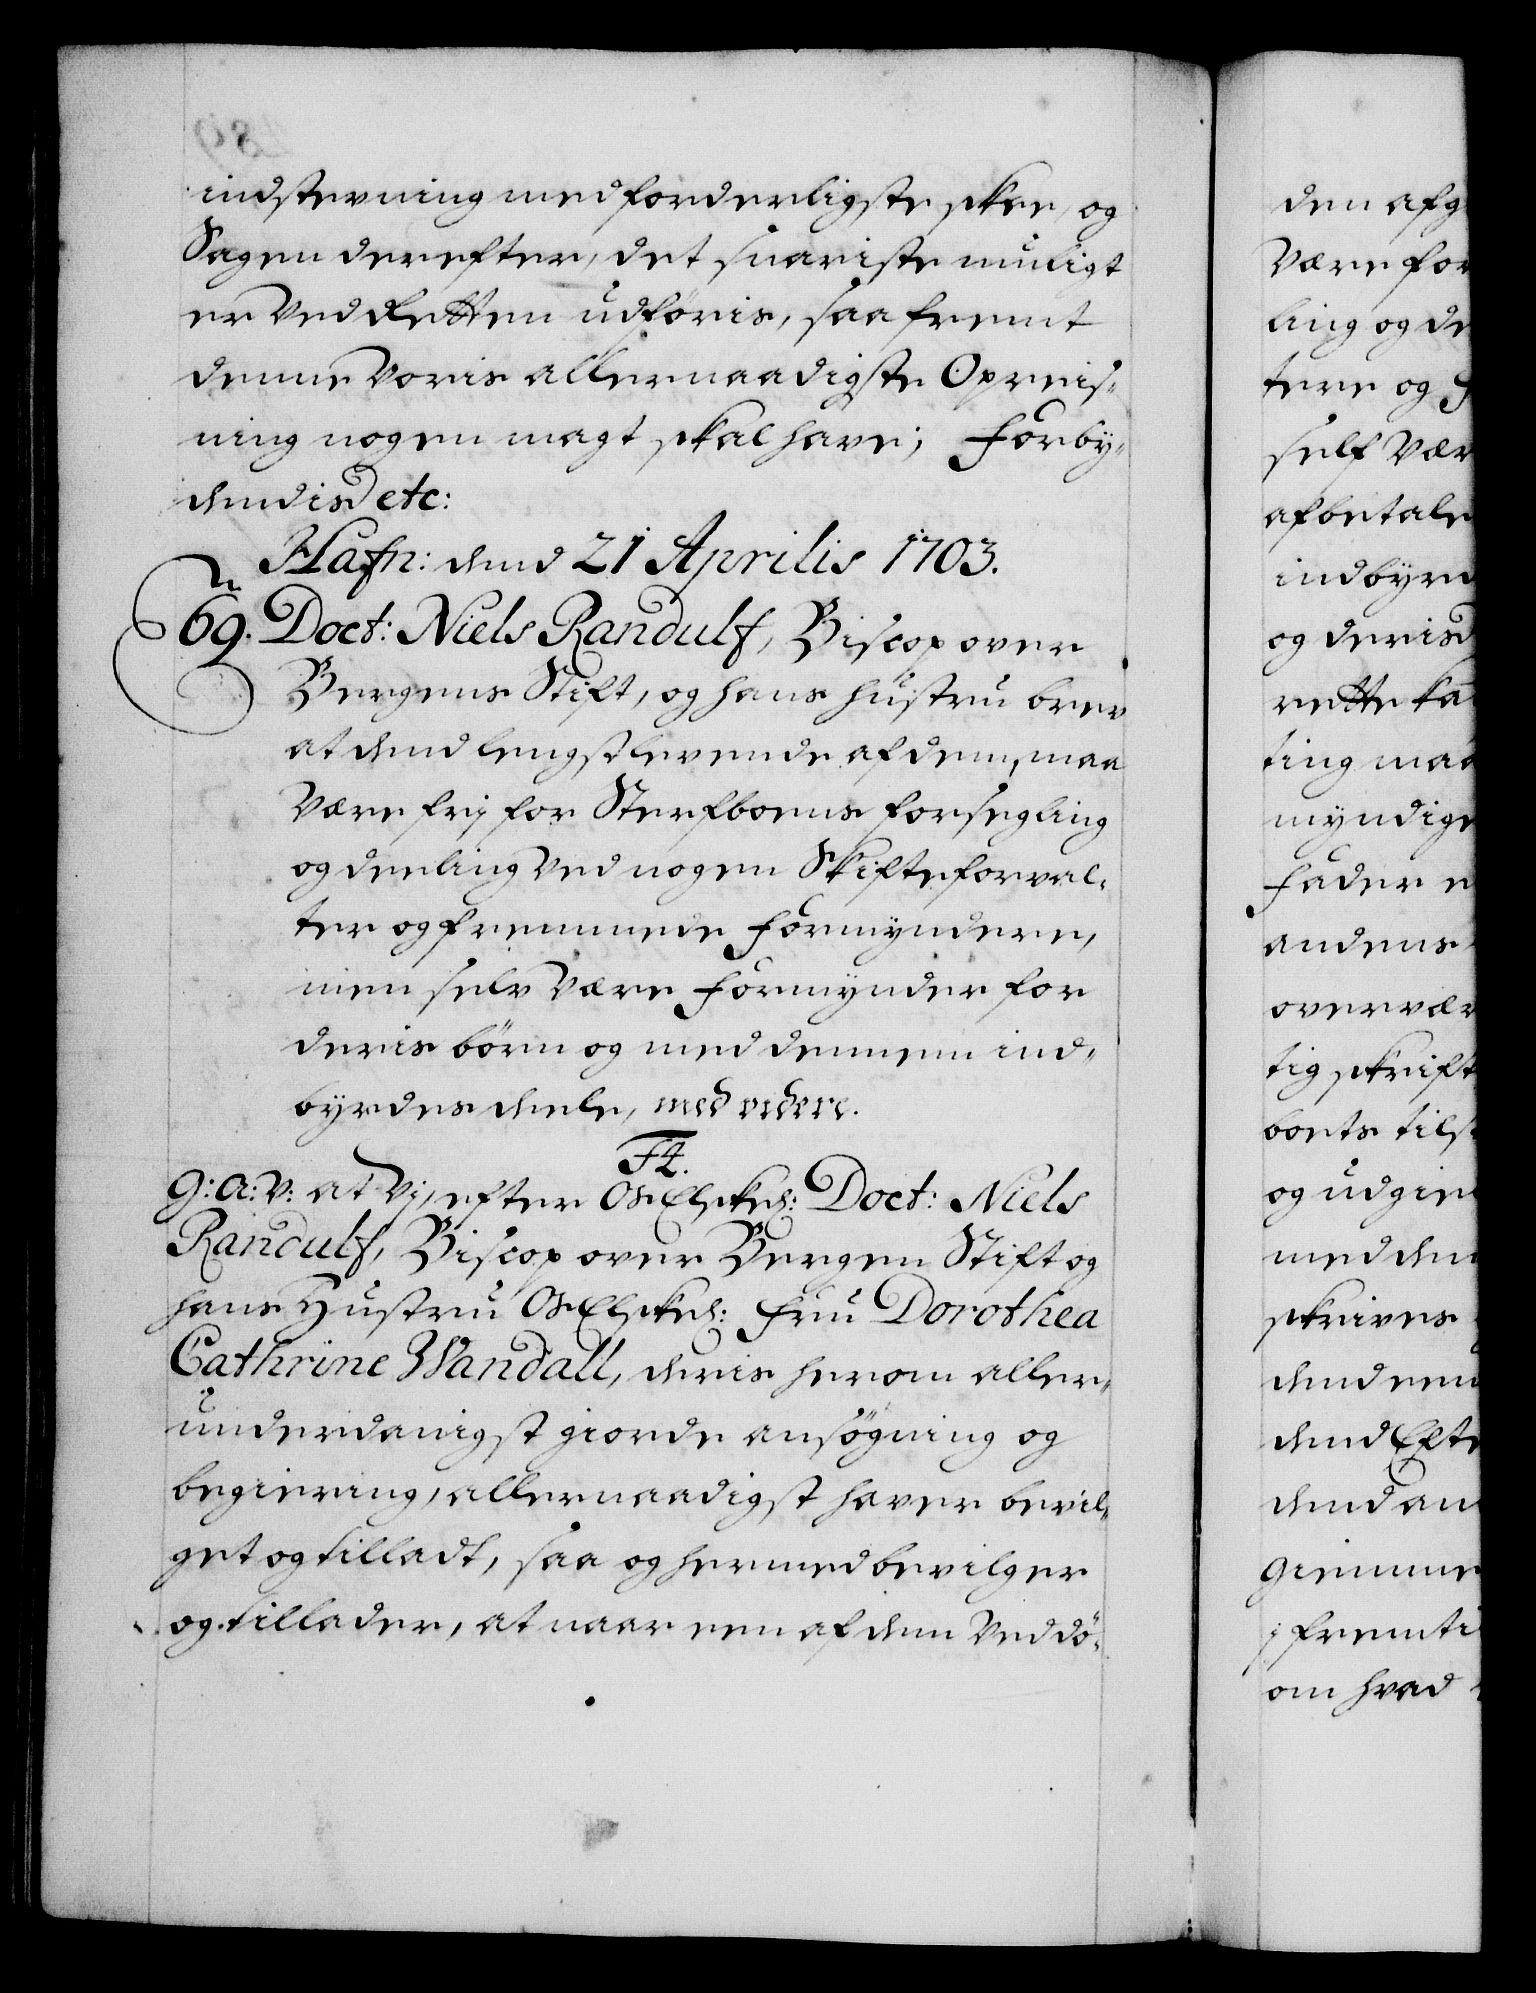 indstevning med forderligste skee, og
Sagen derefter, det snariste muligt
er ved Retten udføris, saafremt
denne Voris allernaadigste Opreis-
ning nogen magt skal have; Forby-
dendis etc:
Hafn: dend 21 Aprilis 1703.
69. Doct: Niels Randulf, Biscop over
Bergens Stift, og hans hustru brev
at dend lengstlevende af dem, maa
Være frj for Sterfboens forsegling
og deeling Ved nogen Skifteforval-
ter og fremmede Formyndere,
men selv Være Formynder for
deris børn og med dennem ind-
byrdes deele, med videre.
F4.
G: A: V: at Vj, efter Os Elskel: Doct: Niels
Randulf, Biscop over Bergen Stift og
hans Hustru Os Elskel: Fru Dorothea
Cathrine Wandall, deris herom aller-
underdanigst giorde ansøgning og
begiering, allernaadigst haver bevil-
get og tilladt, saa og hermed bevilger
og tillader, at naar een af dem Ved dö-
den afg
Være for
ling og de
tere og F
self Vær
afbetale
indbyrd
og deris
rette ka
ting maa
myndige
Fader e
andens
overvær
tig skrift
boets tils
og udgive
med den
skrives
dend een
dend Efte
dend an
giemme
j fremti
om hvad